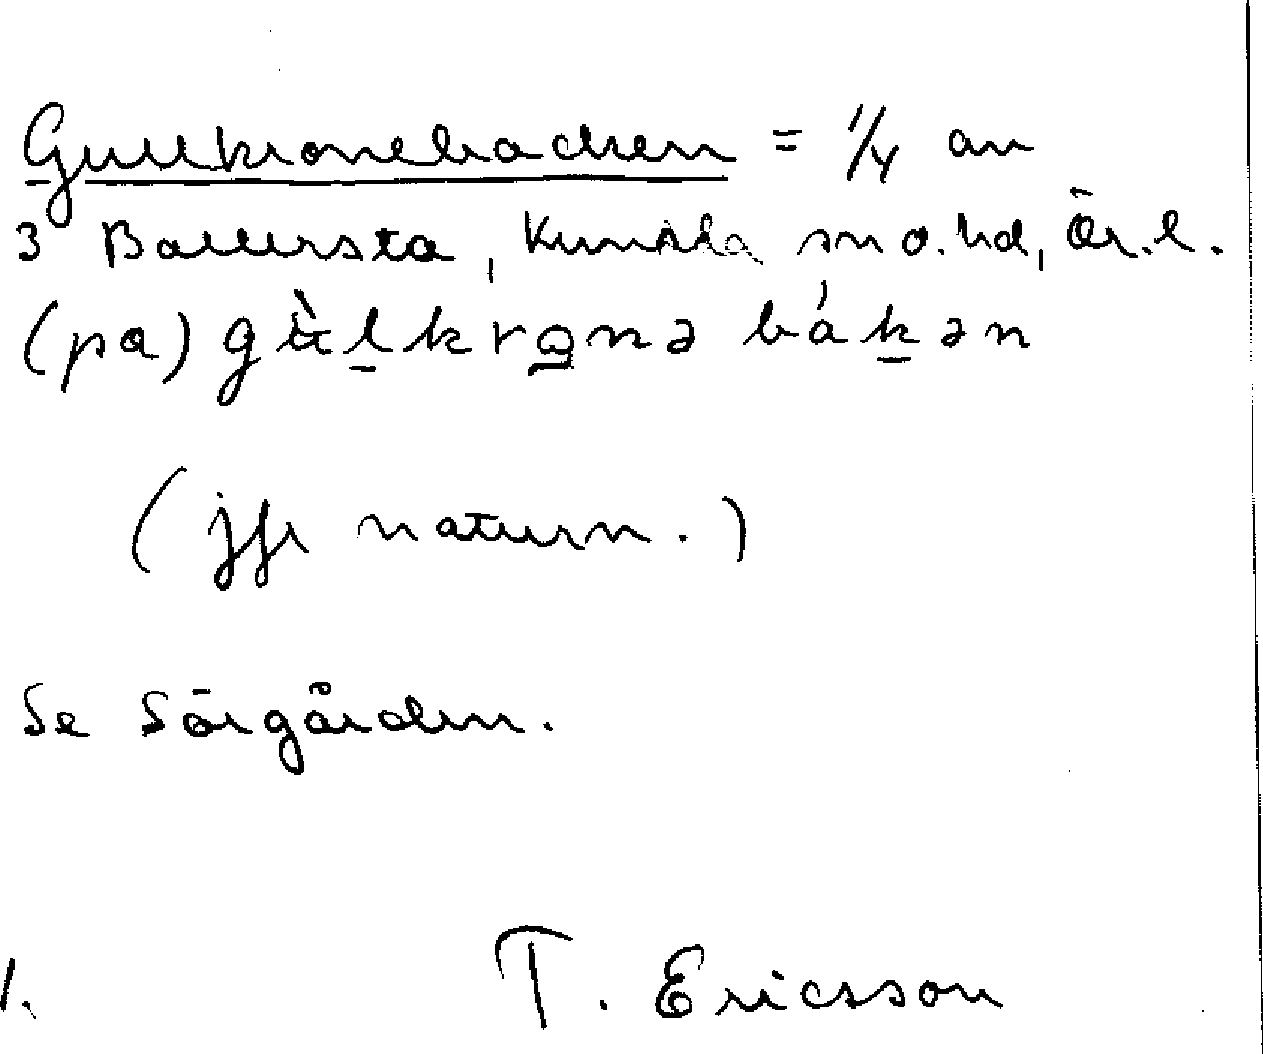 Gullkronebacken = 1/4 av
3 Ballersta, Kumla sn o. hd, Ör. l.
(pa) gùlkronə bákən
(jfr naturn.)
Se Sörgården.
1.
T. Ericsson